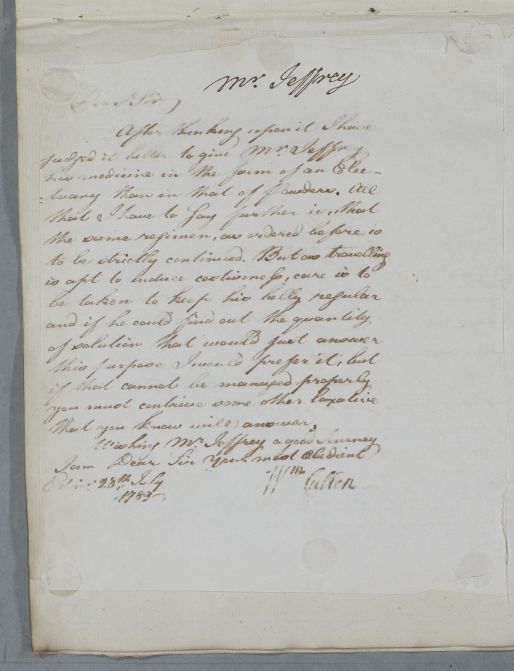 Mr. Jeffrey
Dear Sir,
After thinking upon it I have
judged it better to give Mr Jeffrey
his medicine in the form of an Elec-
-tuary than in that of Powders. All
that I have to say further is, that
the same regimen, as ordered before is
to be strictly continued. But as travelling
is apt to induce costiveness, care is to
be taken to keep his belly regular
and if he could find out the quantity
of solution that would just answer
this purpose I would prefer it, but
if that cannot be managed properly
you must contrive some other laxative
that you know will answer.
Wishing Mr Jeffrey a good Journey
I am Dear Sir Your most Obedient
Edinr. 28th July Wm Cullen